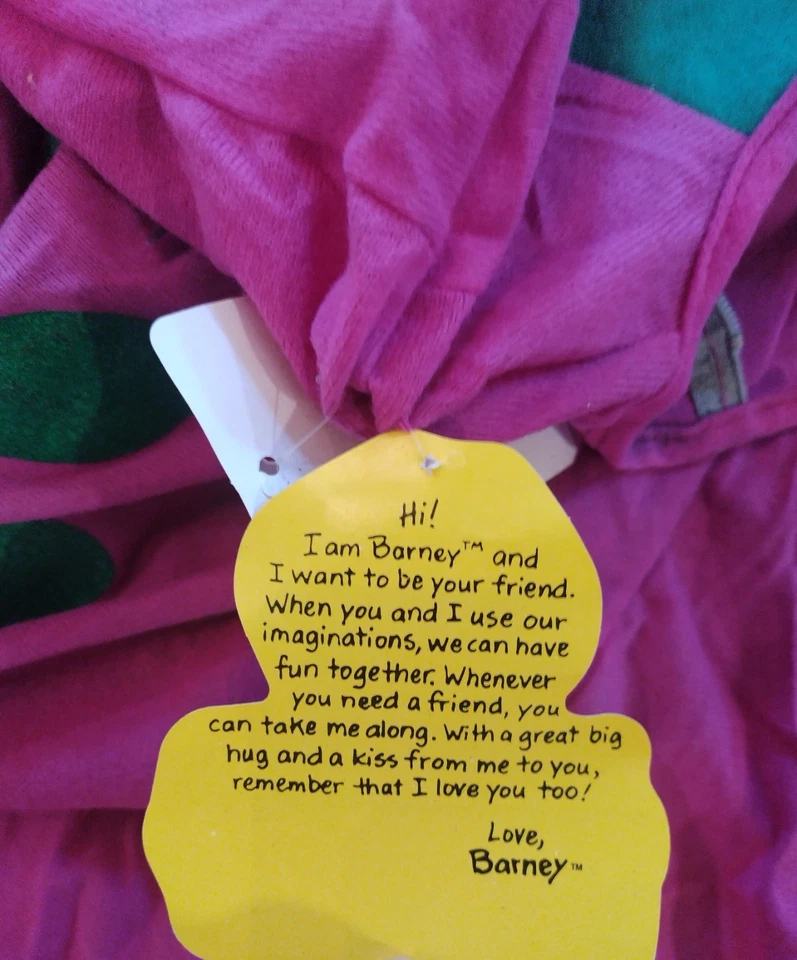 Hi!
I am Barney™ and
I want to be your friend.
When you and I use our
imaginations, we can have
fun together. Whenever
you need a friend, you
can take me along. With a great big
hug and a kiss from me to you,
remember that I love you too!
Love,
Barney™